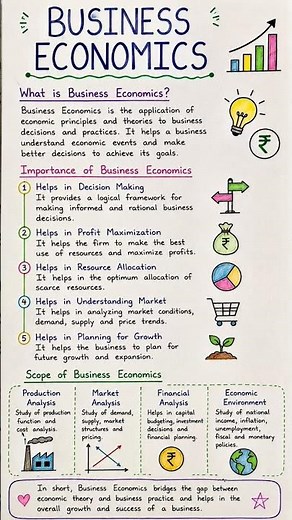 BUSINESS
ECONOMICS
What is Business Economics?
Business Economics is the application of
economic principles and theories to business
decisions and practices. It helps a business
understand economic events and make
better decisions to achieve its goals.
₹
Importance of Business Economics
1 Helps in Decision Making
It provides a logical framework for
making informed and rational business
decisions.
2 Helps in Profit Maximization
It helps the firm to make the best
use of resources and maximize profits.
₹
3 Helps in Resource Allocation
It helps in the optimum allocation of
scarce resources.
4 Helps in Understanding Market
It helps in analyzing market conditions,
demand, supply and price trends.
5 Helps in Planning for Growth
It helps the business to plan for
future growth and expansion.
Scope of Business Economics
Production
Analysis
Study of production
function and
cost analysis.
Market
Analysis
Study of demand,
supply, market
structures and
pricing.
Financial
Analysis
Helps in capital
budgeting, investment
decisions and
financial planning.
₹
Economic
Environment
Study of national
income, inflation,
unemployment,
fiscal and monetary
policies.
In short, Business Economics bridges the gap between
economic theory and business practice and helps in the
overall growth and success of a business.